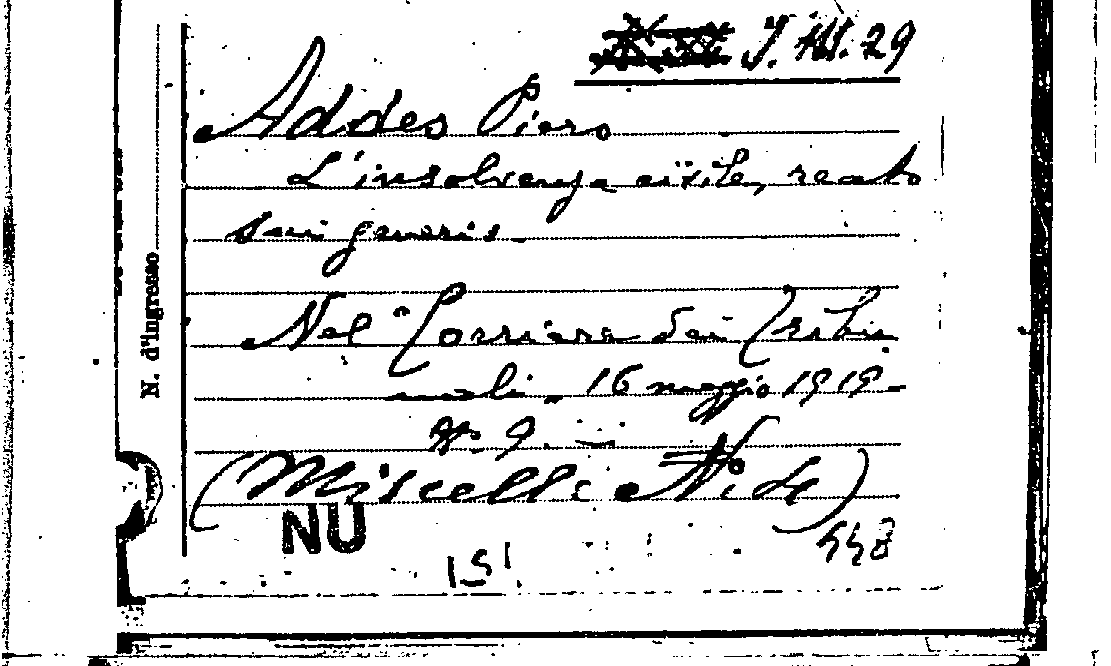 J. III. 29
Addeo Piero
L'insolvenza civile, reato
sui generis.
Nel "Corriere dei Tribu
nali" 16 maggio 1919-
No 9. -
(Miscell: No. 4)
NU
548
N. d'ingresso